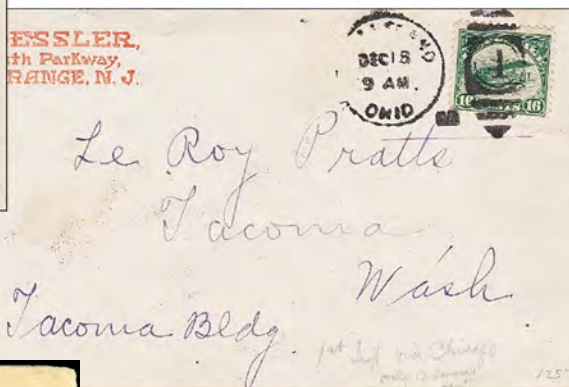 ESSLER,
th Parkway,
RANGE, N. J.
DEC 18
9 AM.
OHIO
1
16 CENTS 16
Le Roy Pratts
Tacoma
Wash
Tacoma Bldg.
via Chicago